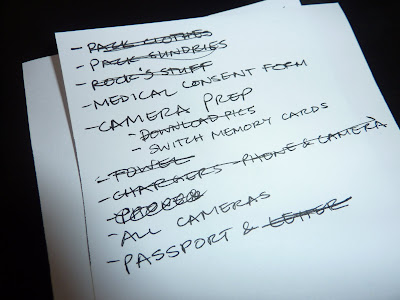 - PACK CLOTHES
- PACK SUNDRIES
- ROCK'S STUFF
- MEDICAL CONSENT FORM
- CAMERA PREP
- DOWNLOAD PICS
- SWITCH MEMORY CARDS
- TOWEL
- CHARGERS - PHONE & CAMERA
-
- ALL CAMERAS
- PASSPORT & LETTER